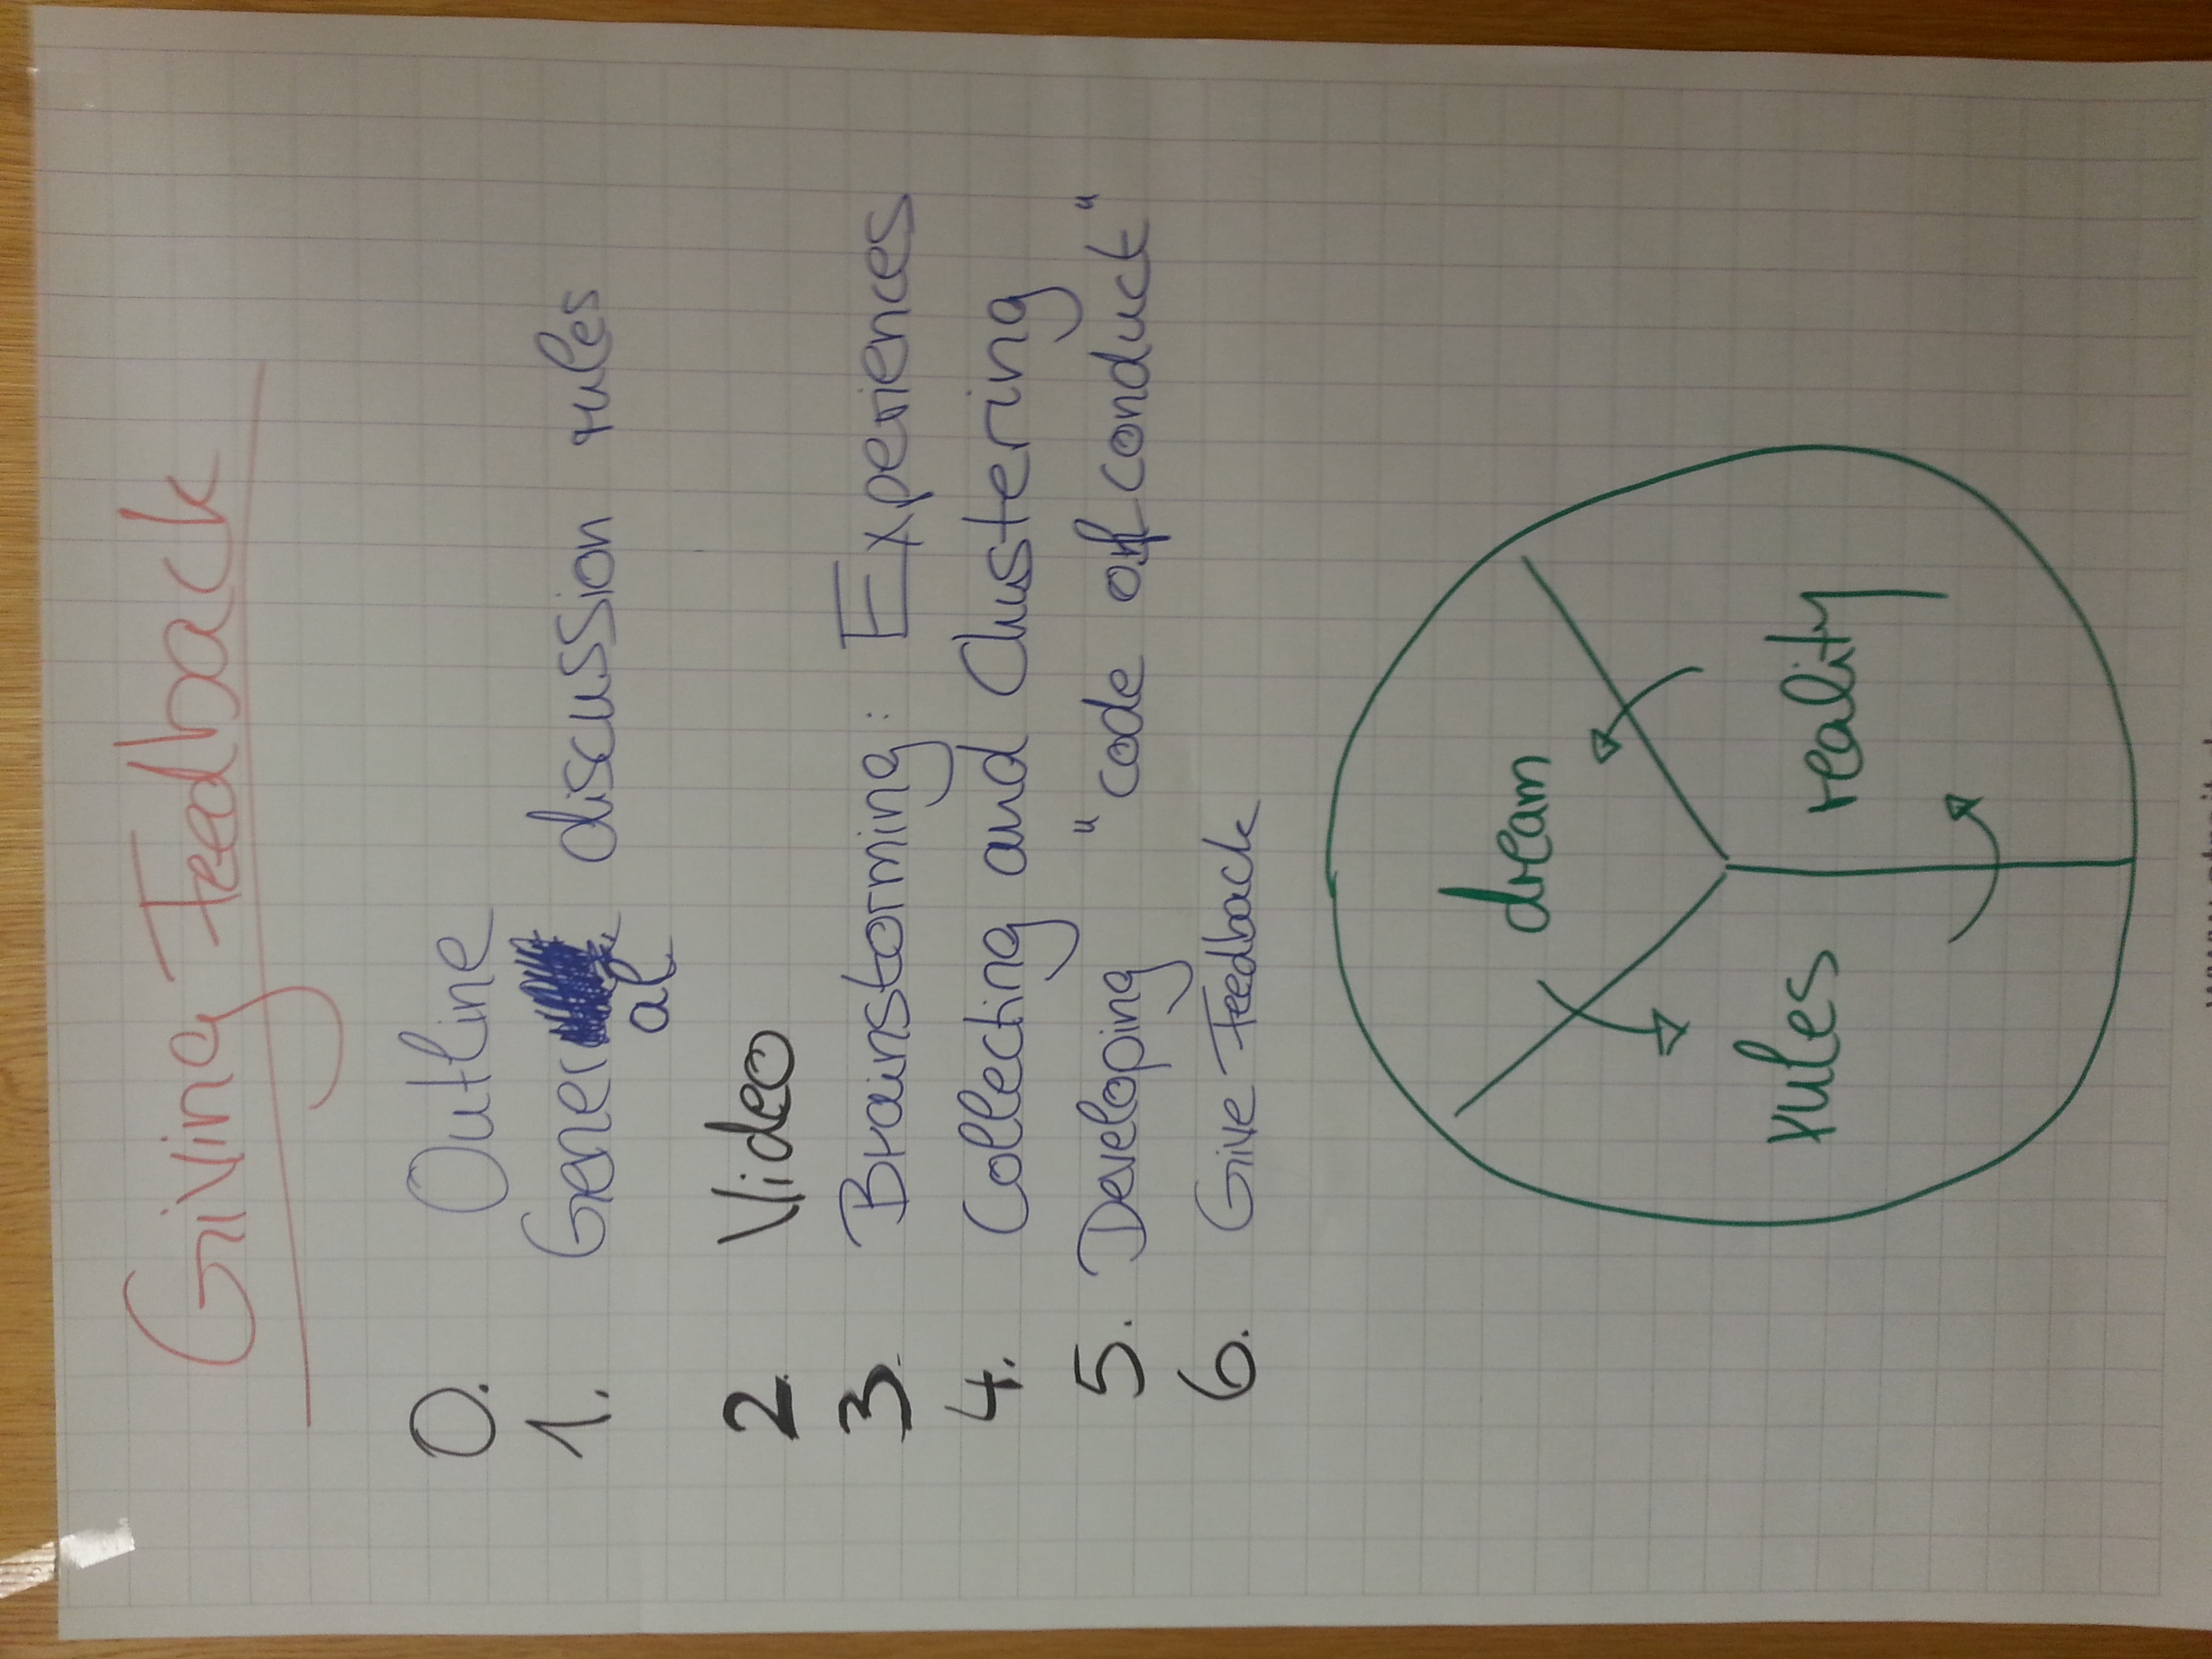 Giving Feedback
0. Outline
1. General discussion rules
2. Video
3. Brainstorming: Experiences
4. Collecting and Clustering
5. Developing "code of conduct"
6. Give Feedback
dream
rules
reality